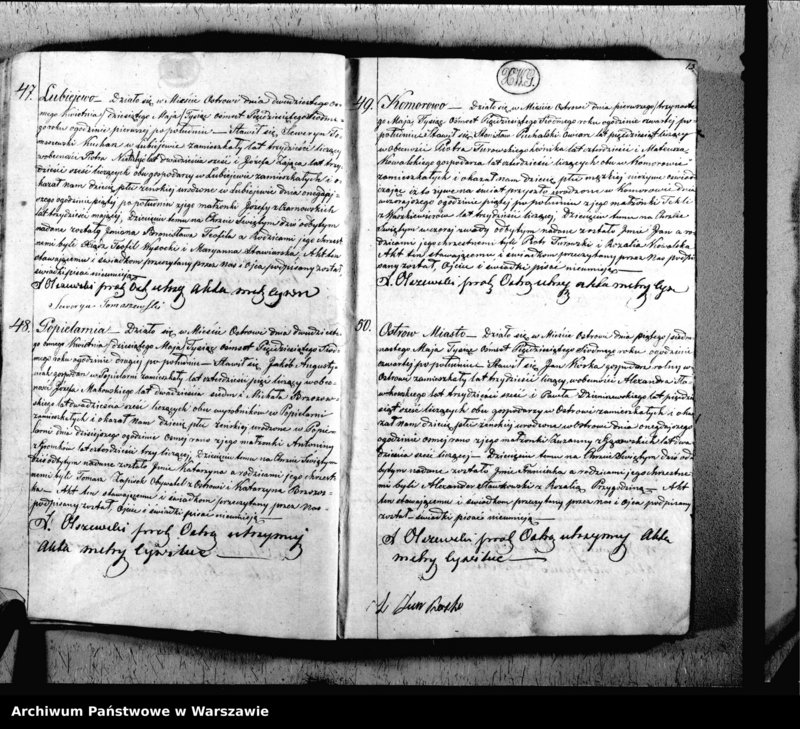 47.
Lubiejewo — Działo się w Mieście Ostrowi dnia dwudziestego os-
mego Kwietnia / dziesiątego Maja / Tysiąc Ośmset Pięćdziesiątego Siódme-
go roku o godzinie pierwszej po południu — Stawił się, Seweryn To-
maszewski Kuchar w Lubiejewie zamieszkały lat trzydzieści liczący
w obecności Piotra lat dwadzieścia sześć i Józefa Zająca lat trzy-
dzieści sześć liczących obu gospodarzy w Lubiejewie zamieszkałych i o-
kazał nam dziecię płci żeńskiej urodzone w Lubiejewie dnia
godzinie piątej po południu z jego małżonki Józefy z Czarnowskich
lat trzydzieści mającej, dziecięciu temu na Chrzcie Świętym dziś odbytym
nadane zostały Imiona Bronisława Teofila a Rodzicami jego chrzest-
nemi byli Ksiądz Teofil Wysocki i Maryanna Sławiarska Akt ten
stawającemu i świadkom przeczytany przez Nas i Ojca podpisany został,
świadki pisać nieumieją
X Olszewski prob Ost utrzy Akta metr Cywilne
Seweryn Tomaszewski
48.
Popielarnia — Działo się w Mieście Ostrowi dnia dwudzieste-
go ósmego Kwietnia / dziesiątego Maja Tysiąc Ośmset Pięćdziesiątego Siód-
mego roku o godzinie drugiej po południu — Stawił się Jakób Augusty-
niak gospodarz w Popielarni zamieszkały lat czterdzieści pięć liczący w obec-
ności Józefa Makowskiego lat dwadzieścia siedm i Michała Brzozow-
skiego lat dwadzieścia sześć liczących obu wyrobników w Popielarni
zamieszkałych i okazał Nam dziecię płci żeńskiej urodzone w Popie-
larni dnia dzisiejszego o godzinie ósmej rano z jego małżonki Antoniny
z lat czterdzieści trzy liczącej, Dziecięciu temu na Chrzcie Świętym
dziś odbytym nadane zostało Imie Katarzyna a rodzicami jego chrzest-
nemi byli Tomasz Zapisek Obywatel z Ostrowi i Katarzyna Brzozow-
ska — Akt ten stawającemu i świadkom przeczytany przez Nas
podpisany został, Ojciec i świadki pisać nieumieją
X Olszewski prob Ostro utrzymuj
Akta metry Cywilne
13
49.
Komorowo — Działo się w Mieście Ostrowi dnia pierwszego / trzynaste-
go Maja Tysiąc Ośmset Pięćdziesiątego Siódmego roku o godzinie czwartej po
południu Stawił się Stanisław Puchalski Owczarz lat pięćdziesiąt liczący
w obecności Piotra Turowskiego lat czterdzieści i Mateusza
Kowalskiego gospodarza lat czterdzieści liczących obu w Komorowie
zamieszkałych i okazał nam dziecię płci męzkiej
iż to syna na świat przyszło urodzone w Komorowie dnia
wczorajszego o godzinie piątej po południu z jego małżonki Tekli
z Markiewiczów lat trzydzieści liczącej, Dziecięciu temu na Chrzcie
Świętym odbytym nadane zostało Imie Jan a ro-
dzicami jego chrzestnemi byli Piotr Turowski i Rozalia Kowalska
Akt ten stawającemu i świadkom przeczytany przez Nas podpi-
sany został, Ojciec i świadki pisać nieumieją
X Olszewski prob Ostro utrzy akta metry Cyw
50.
Ostrów Miasto — Działo się w Mieście Ostrowi dnia piątego / siedm-
nastego Maja Tysiąc Ośmset Pięćdziesiątego Siódmego roku o godzinie
czwartej po południu Stawił się Jan gospodarz rolny w
Ostrowi zamieszkały lat trzydzieści liczący, w obecności Alexandra Sła-
wkowskiego lat trzydzieści sześć i Pawła lat pięćdzie-
siąt sześć liczących obu gospodarzy w Ostrowi zamieszkałych i oka-
zał nam dziecię płci żeńskiej urodzone w Ostrowi dnia onegdajszego
o godzinie ósmej rano z jego małżonki Zuzanny z lat dwa-
dzieścia liczącej — Dziecięciu temu na Chrzcie Świętym dziś od-
bytym nadane zostało Imie a rodzicami jego chrzestne-
mi byli Alexander Sławkowski i Rozalia Przygodzina — Akt
ten stawającemu i świadkom przeczytany przez nas i Ojca podpisany
został — świadki pisać nieumieją
X Olszewski prob Ostro utrzymuj Akta
metry Cywilne
Jan
Archiwum Państwowe w Warszawie